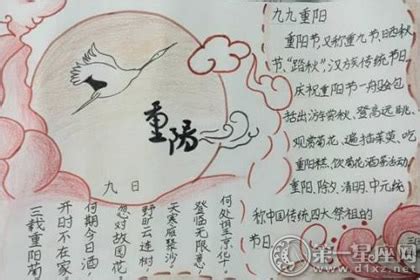 重陽
九日
三载重阳菊
开时不在家
何期今日酒
忽对故园花
野旷云连树
天寒雁聚沙
登临无限意
何处望京华
九九重阳
重阳节,又称重九节、晒秋
节、"踏秋",汉族传统节日
庆祝重阳节一般会包
括出游赏秋、登高远眺、
观赏菊花、遍插茱萸、吃
重阳糕、饮菊花酒等活动
重阳、除夕、清明、中元统
称中国传统四大祭祖的
节日。
第一星座网
www.d1xz.net